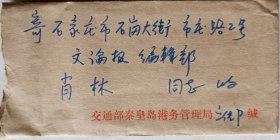 寄 石家庄市石岗大街 市庄路2号
文论报 编辑部
肖林 同志 收
交通部秦皇岛港务管理局 缄